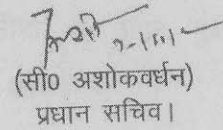 (सी० अशोकवर्धन)
प्रधान सचिव।